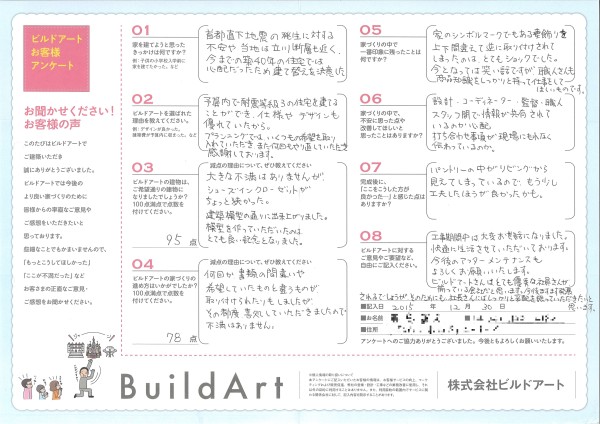 ビルドアート
お客様
アンケート
お聞かせください!
お客様の声
このたびはビルドアートで
ご建築いただき
誠にありがとうございました。
ビルドアートでは今後の
より良い家づくりのために
皆様からの率直なご意見や
ご感想をいただきたいと
思っております。
些細なことでもかまいませんので、
「もっとこうしてほしかった」
「ここが不満だった」など
お客さまの正直なご意見・
ご感想をお聞かせください。
01
家を建てようと思った
きっかけは何ですか?
例:子供の小学校入学前に
家を建てたかった。など
首都直下地震の発生に対する
不安や当地は立川断層も近く、
今までの築40年の住宅では
心配だったため建て替えを決意した
02
ビルドアートを選ばれた
理由を教えてください。
予算内で耐震等級3の住宅を建てる
ことができ、仕様やデザインも
優れていたから。
プランニングでは、いくつもの希望を取り
入れていただき、また何回もやり直していただき
感謝しております。
03
ビルドアートの建物は、
ご希望通りの建物に
なりましたでしょうか?
100点満点で点数を
付けてください。
95点
減点の理由について、ぜひ教えてください
大きな不満はありませんが、
シューズインクローゼットが
ちょっと狭かった。
建築模型の通りに出来上がりました。
模型を作っていただいたのは
とても良い記念となりました。
04
ビルドアートの家づくりの
進め方はいかがでしたか?
100点満点で点数を
付けてください。
78点
減点の理由について、ぜひ教えてください
何回か書類の間違いや
希望していたものと違うものが
取り付けられたりもしましたが
その都度善処していただきましたので
不満はありません。
05
家づくりの中で
一番印象に残ったことは
何ですか?
家のシンボルマークでもある妻飾りを
上下間違えて逆に取り付けされて
しまったのは、とてもショックでした。
今となっては笑い話ですが、職人さんも
商品知識をしっかりと持って仕事して
ほしいものです。
06
家づくりの中で、
不安に思った点や
改善してほしいと
思ったことはありますか?
設計・コーディネーター・監督・職人
スタッフ間で情報が共有されて
いるのか心配。
打ち合わせ事項が現場にもれなく
伝わっているのか。
07
完成後に、
「ここをこうした方が
良かった…」と感じた点は
ありますか?
パントリーの中がリビングから
見えてしまっているので、もう少し
工夫したほうが良かったかも。
08
ビルドアートに対する
ご意見やご要望など、
自由にご記入ください。
工事期間中は大変お世話になりました。
快適に生活させていただいております。
今後のアフターメンテナンスも
よろしくお願いいたします。
ビルドアートさんはとても優秀な社員さんが
揃っている会社だと思います。今後ますます発展
されるでしょうが、そのためにも、社長さんにはしっかりと
思います。
■記入日 2015年12月30日
■お名前
■住所
アンケートへのご協力ありがとうございました。今後ともよろしくお願いいたします。
BuildArt
株式会社ビルドアート